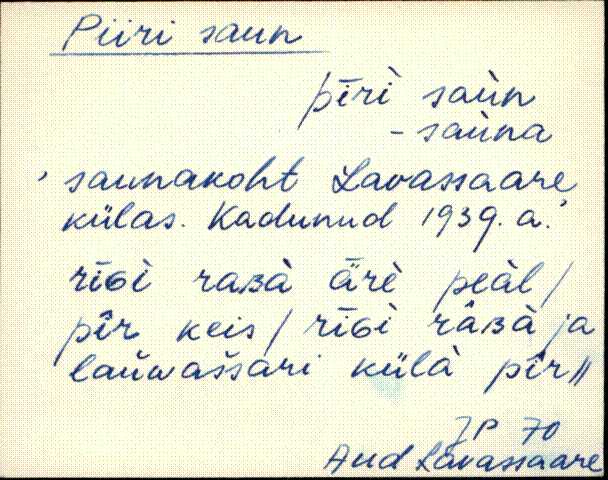 Piiri saun
pīrì saùn
- saùna
' saunakoht Lavassaare
külas. Kadunud 1939. a.'
rīɢì raʙà ärè peàl /
pîr keis / rīɢì râʙà ja
laùwašsari külà pîr //
JP 70
Aud Lavassaare